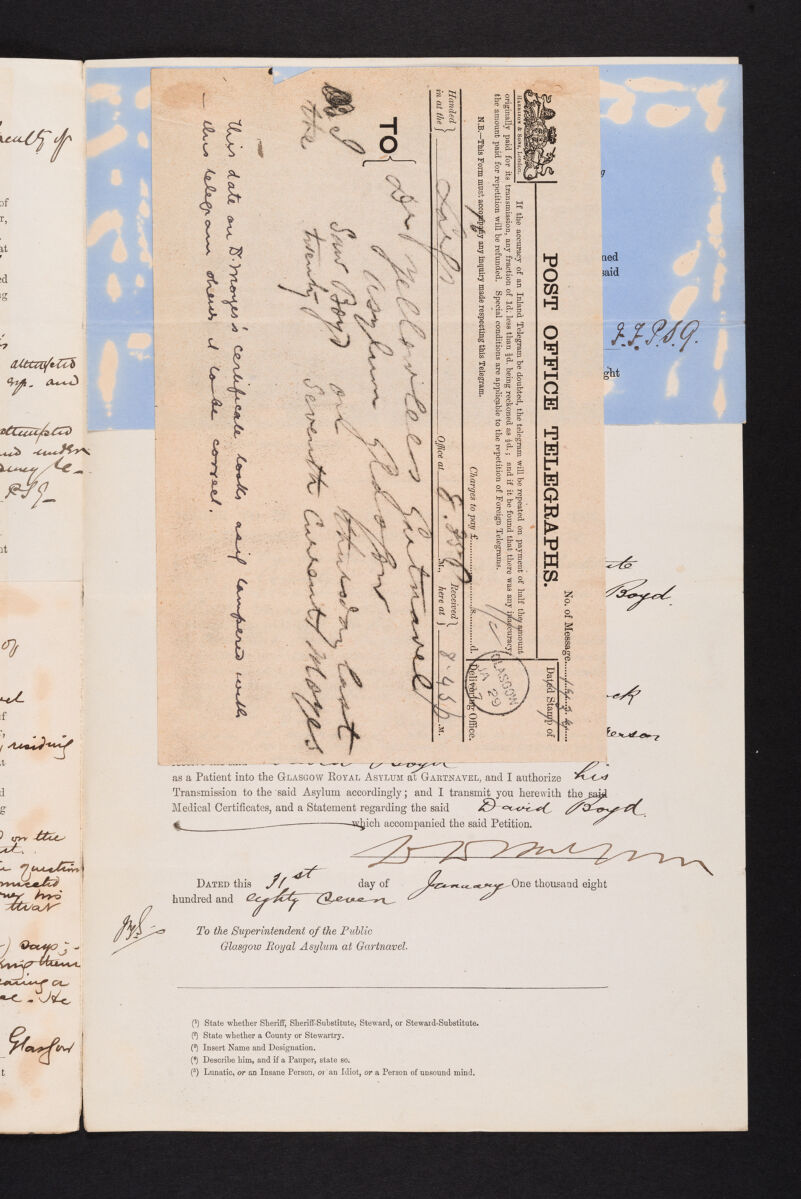 POST OFFICE TELEGRAPHS.
No. of Message
If the accuracy of an Inland Telegram be doubted, the telegram will be repeated on payment of half the amount
originally paid for its transmission, any fraction of 1d. less than ½d. being reckoned as ½d.; and if it be found that there was any inaccuracy,
the amount paid for repetition will be refunded. Special conditions are applicable to the repetition of Foreign Telegrams.
HARRISON & SONS, London.
Dated Stamp of
Delivering Office.
GLASGOW
JA 29
N.B.—This Form must accompany any inquiry made respecting this Telegram.
Charges to pay £ s. d.
Handed in at the Largs Office at 8.35 M., Received here at 8.45 M.
TO Dr Yellowlees Gartnavel
Asylum Glasgow
I Saw Boyd on thursday last
the twenty Seventh Current Moyes
This date on Dr. Moyes's certificate looks as if tampered with
— this telegram shews it to be correct.
F.F.P.S.G.
ght
Boyd.
as a Patient into the GLASGOW ROYAL ASYLUM at GARTNAVEL, and I authorize his
Transmission to the said Asylum accordingly; and I transmit you herewith the said
Medical Certificates, and a Statement regarding the said David Boyd.
which accompanied the said Petition.
DATED this 31st day of January One thousand eight
hundred and eighty seven
To the Superintendent of the Public
Glasgow Royal Asylum at Gartnavel.
(¹) State whether Sheriff, Sheriff-Substitute, Steward, or Steward-Substitute.
(²) State whether a County or Stewartry.
(³) Insert Name and Designation.
(⁴) Describe him, and if a Pauper, state so.
(⁵) Lunatic, or an Insane Person, or an Idiot, or a Person of unsound mind.
residing
on the
that
days;
Glasgow